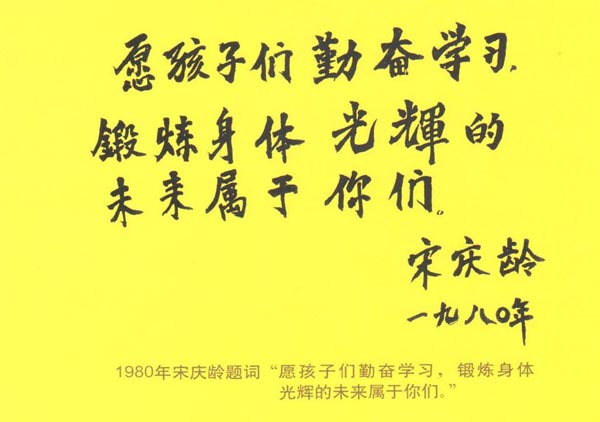 愿孩子们勤奋学习、
鍛炼身体光輝的
未来属于你们。
宋庆龄
一九八〇年
1980年宋庆龄题词“愿孩子们勤奋学习，锻炼身体
光辉的未来属于你们。”